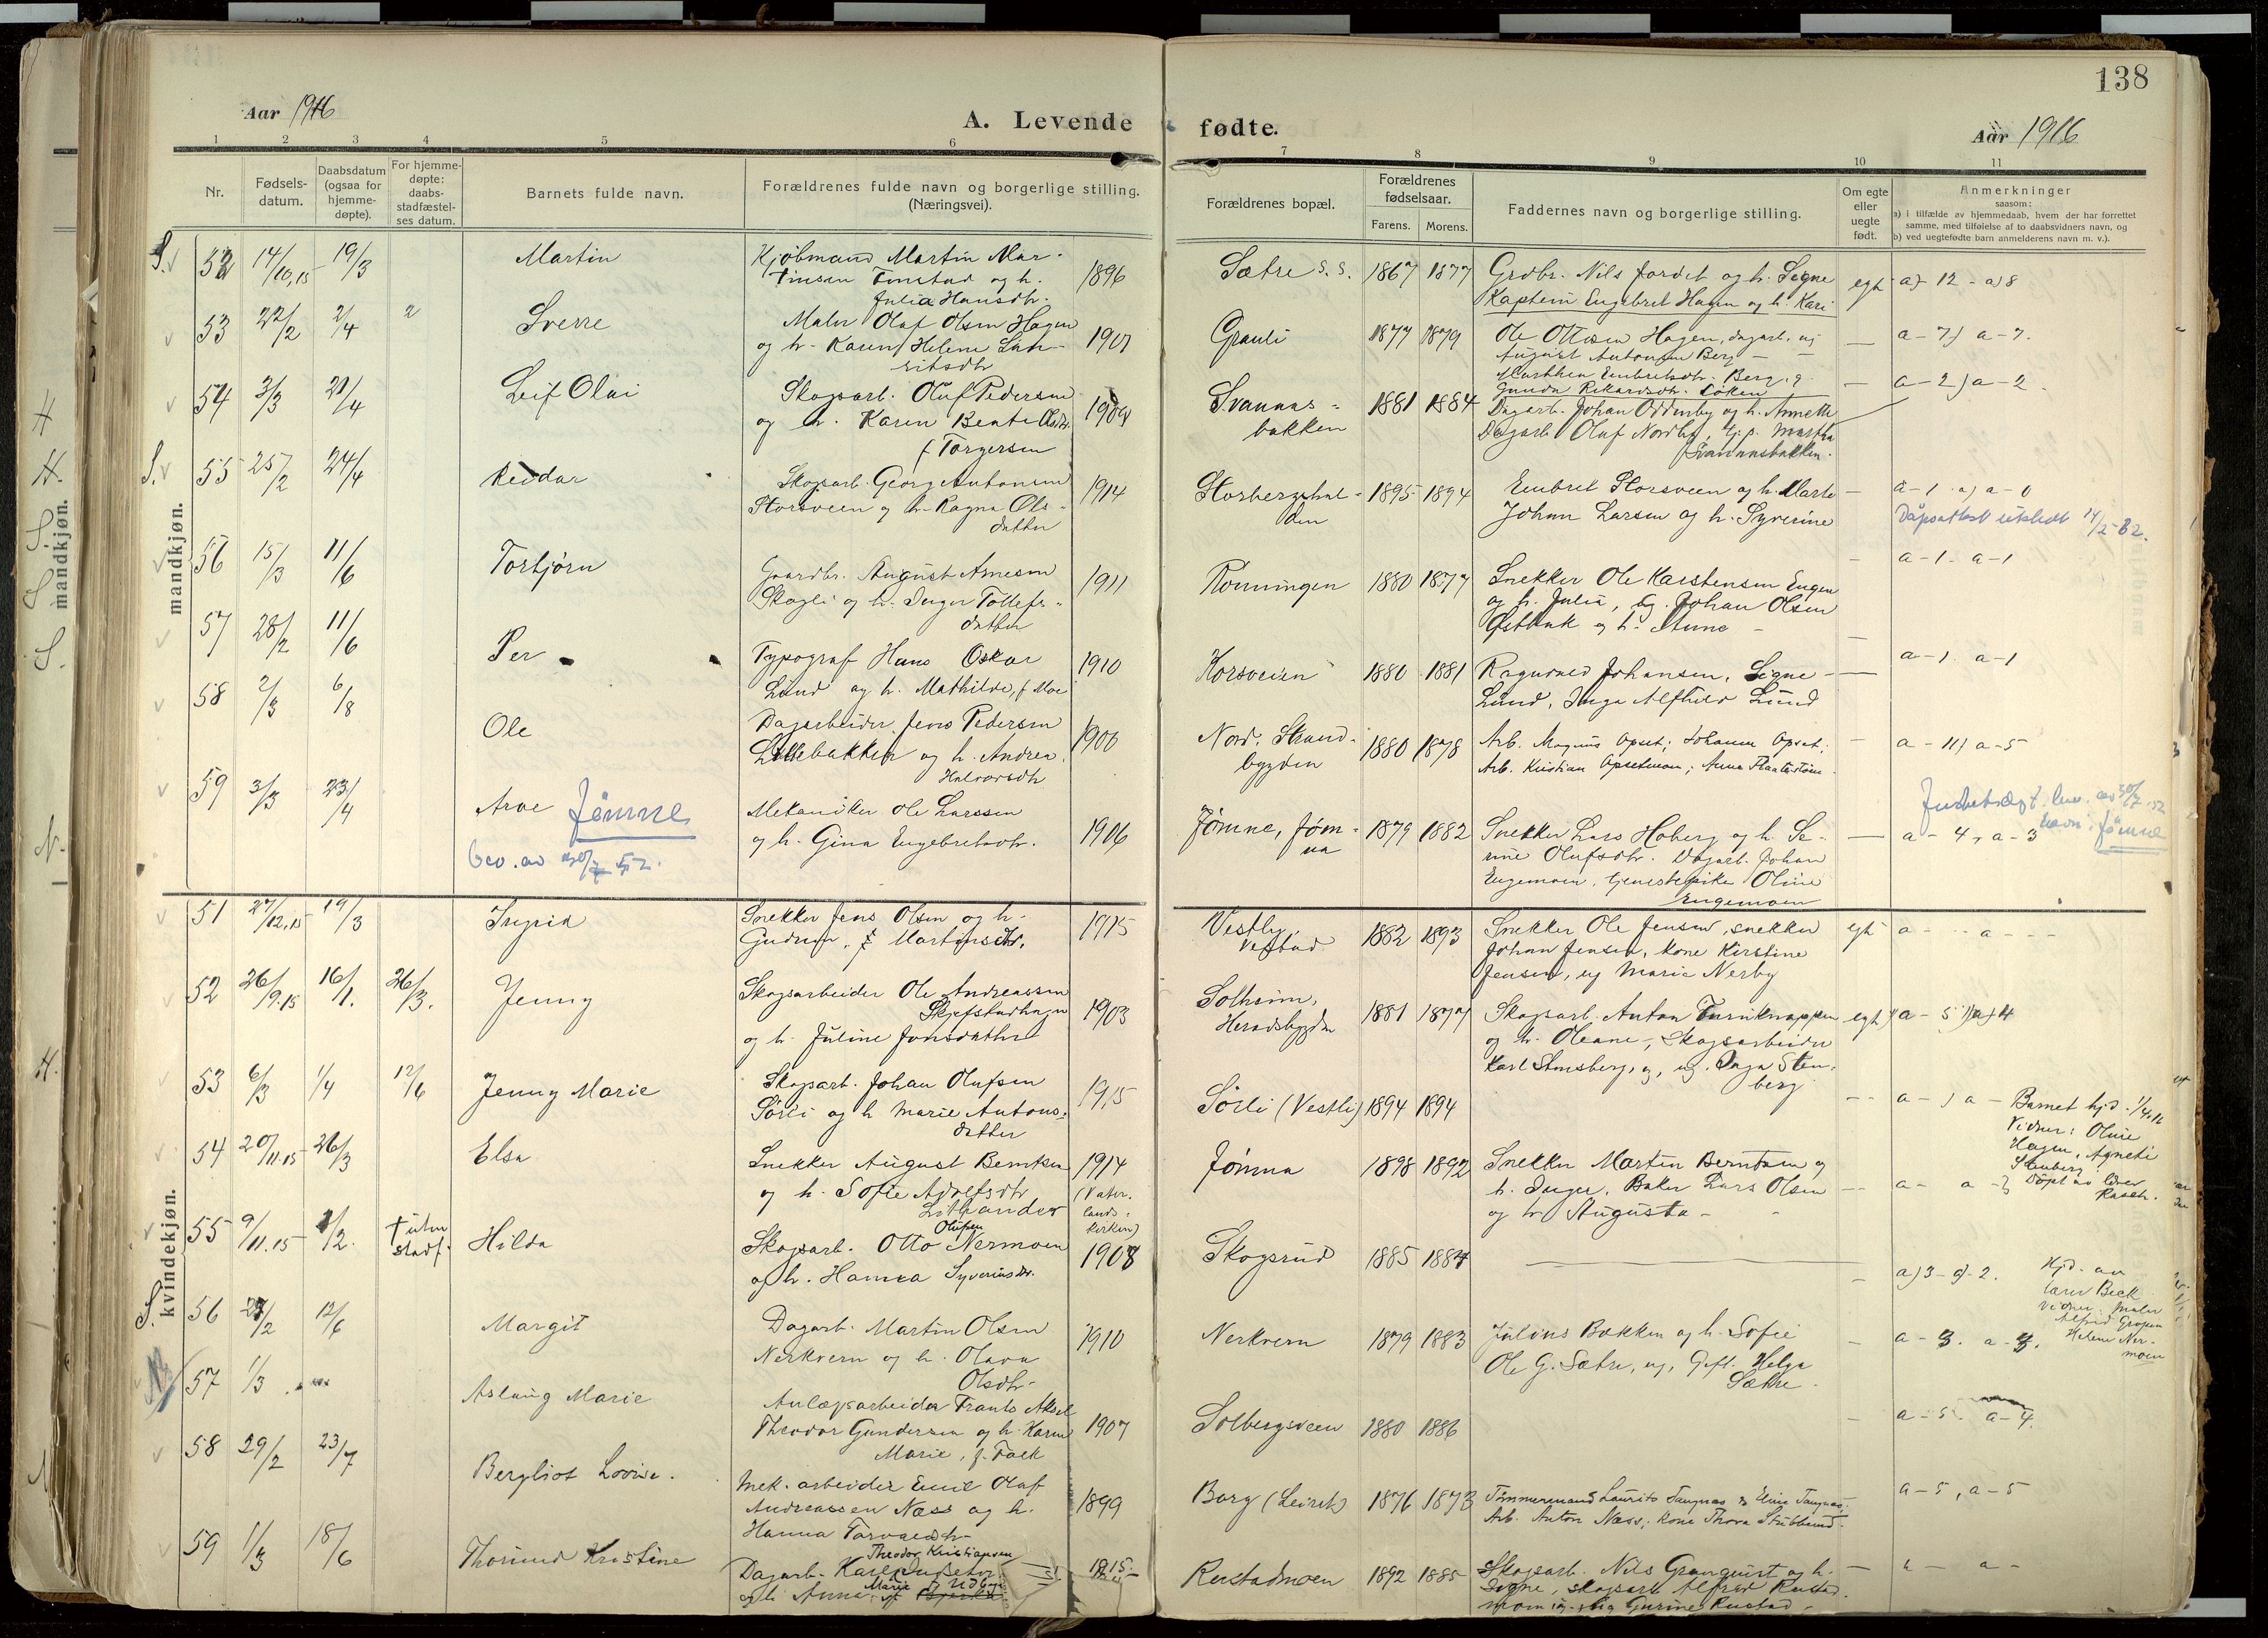 138
Aar 1916
A. Levende fødte.
Aar 1916
1 2 3 4 5 6 7 8 9 10 11
Nr.
Fødsels-
datum.
Daabsdatum
(ogsaa for
hjemme-
døpte).
For hjemme-
døpte:
daabs-
stadfæstel-
ses datum.
Barnets fulde navn.
Forældrenes fulde navn og borgerlige stilling.
(Næringsvei).
Forældrenes bopæl.
Forældrenes
fødselsaar.
Farens. Morens.
Faddernes navn og borgerlige stilling.
Om egte
eller
uegte
født.
Anmerkninger
saasom:
a) i tilfælde av hjemmedaab, hvem der har forrettet
samme, med tilføielse af to daabsvidners navn, og
b) ved uegtefødte barn anmelderens navn m. v.).
mandkjøn.
S. 52 14/10,15 19/3 Martin
Kjøbmand Martin Mar-
tinsen Finstad og h.
Julia Hansdtr.
1896
Sætre S. S. 1867 1877
Grdbr. Nils Jordet og h. Signe
Kaptein Engebret Hagen og h. Kari
egt a) 12 - a) 8
53 22/2 2/4 Sverre
Maler Olaf Olsen Hagen
og h. Karen Helene
1901
Grauli 1877 1879
Ole Ottosen Hagen, dagarb. og
August Antonsen Berg
Marthea Embretsdtr. Berg, g.
Gunda Rikardsdtr. Löken
a - 7) a - 7.
54 3/3 21/4 Leif Olai
Skogsarb. Oluf Pedersen
og h. Karen Beate Olsdtr.
f. Torgersen
1909
Svannas-
bakken
1881 1884
Dagarb. Johan Oddenby og h. Annette
Dagarb. Oluf Nordby, tj.p. Martha
Svanaasbakken.
a - 2) a - 2.
S. 55 25/2 24/4 Reidar
Skogsarb. Georg Antonsen
Storsveen og h. Ragna Ols-
datter
1914
Storberget
1895 1894
Embret Storsveen og h. Marte
Johan Larsen og h. Syverine
a - 1. a) a - 0
Dåpsattest utstedt 14/2-62.
56 15/3 11/6 Torbjørn
Gaardbr. August Arnesen
Skogli og h. Inger Tollefs-
datter
1911
Rønningen 1880 1877
Snekker Ole Karstensen Engen
og h. Julia, Johan Olsen
Østbak og h.
a - 1. a - 1
57 28/2 11/6 Per
Typograf Hans Oskar
Lund og h. Mathilde, f. Moe
1910
Korsveien 1880 1881
Ragnvald Johansen, Signe
Lund, Inga Alfhild Lund
a - 1. a - 1
58 2/3 6/8 Ole
Dagarbeider Jens Pedersen
Lillebakken og h. Andrea
Halvorsdtr
1906
Nord. Strand-
bygden
1880 1878
Arb. Magnus Opset; Johanna Opset;
Arb. Kristian Opsetmoen; Anna
a - 11) a - 5
59 3/3 23/4 Arve Jømne
bev. av 30/7 52.
Mekaniker Ole Larssen
og h. Gina Engebretsdtr.
1906
Jømne, Jøm-
na
1879 1882
Snekker Lars Hoberg og h. Se-
rine Olufsdtr. Dagarb. Johan
Engemoen, tjenestepike Oline
Engemoen
a - 4, a - 3
Justisdept. bev. av 30/7 52
navn: Jømne
kvindekjøn.
51 27/12,15 19/3 Ingrid
Snekker Jens Olsen og h.
Gudrun, f. Martinsdtr.
1915
Vestby,
Vestad
1882 1893
Snekker Ole Jensen, snekker
Johan Jensen, kone Kirstine
Jensen, ug Marie Nerby
egt a - a -
52 26/9.15 16/1. 26/3. Jenny
Skogsarbeider Ole Andreassen
Skjefstadhagen
og h. Juline Jonsdatter
1903
Solheim,
Heradsbygden
1881 1877
Skogsarb. Anton Furuknappen
og h. Oleane, Skogsarbeider
Karl Stensberg, g, ug. Inga Sten-
berg
egt a - 5) a) 4
53 6/3 1/4 12/6 Jenny Marie
Skogsarb. Johan Olufsen
Sörli og h Marie Antons-
datter
1915
Sörli (Vestli) 1894 1894
a - ) a - Barnet hjd. 1/4 16
Vidner: Oline
Hagen, Agnete
Stenberg.
Döpt av lærer
54 20/11.15 26/3 Elsa
Snekker August Berntsen
og h. Sofie Adolfsdtr
Lithander
1914
(Vater-
lands-
kirken)
Jømna 1898 1892
Snekker Martin Berntsen og
h. Inger. Baker Lars Olsen
og h. Augusta
a - a -
55 9/11.15 /2. † uten
stadf. Hilda
Skogsarb. Otto Olufsen Nermoen
og h. Hanna Syverinsdtr.
1908
Skogsrud 1885 1884
a) 3 - a) - 2. Hjd. av
lærer Beck
Vidner: Maler
Alfred
Helene Ner-
moen
S. 56 /2 12/6 Margit
Dagarb. Martin Olsen
Nerkvern og h. Olava
Olsdtr.
1910
Nerkvern 1879 1883
Julius Bakken og h. Sofie
Ole G. Sætre, ug, Gift. Helga
Sætre.
a - 3. a - 3.
57 1/3 Aslaug Marie
Anlægsarbeider Frants Aksel
Theodor Gundersen og h. Karen
Marie, f. Falk
1907
Solbergsveen 1880 1886
a - 5. a - 4.
58 29/2 23/7 Bergliot Lovise.
Mek. arbeider Emil Olaf
Andreassen Næss og h.
Hanna Torvalsdtr
1899
Borg (Leiret) 1876 1873
Tømmermand Laurits Tangnæs & Elise Tangnæs;
Arb. Anton Næss; kone Thora Stubberud.
a - 5, a - 5
59 1/3 18/6 Thorund Kristine
Dagarb. Karl
Theodor Kristiansen
og h. Anna Marie
1915
Rustadmoen 1892 1885
Skogsarb. Nils Granquist og h.
Signe, skogsarb Alfred Rustad-
moen ug. Gurine Rustad
a - a -